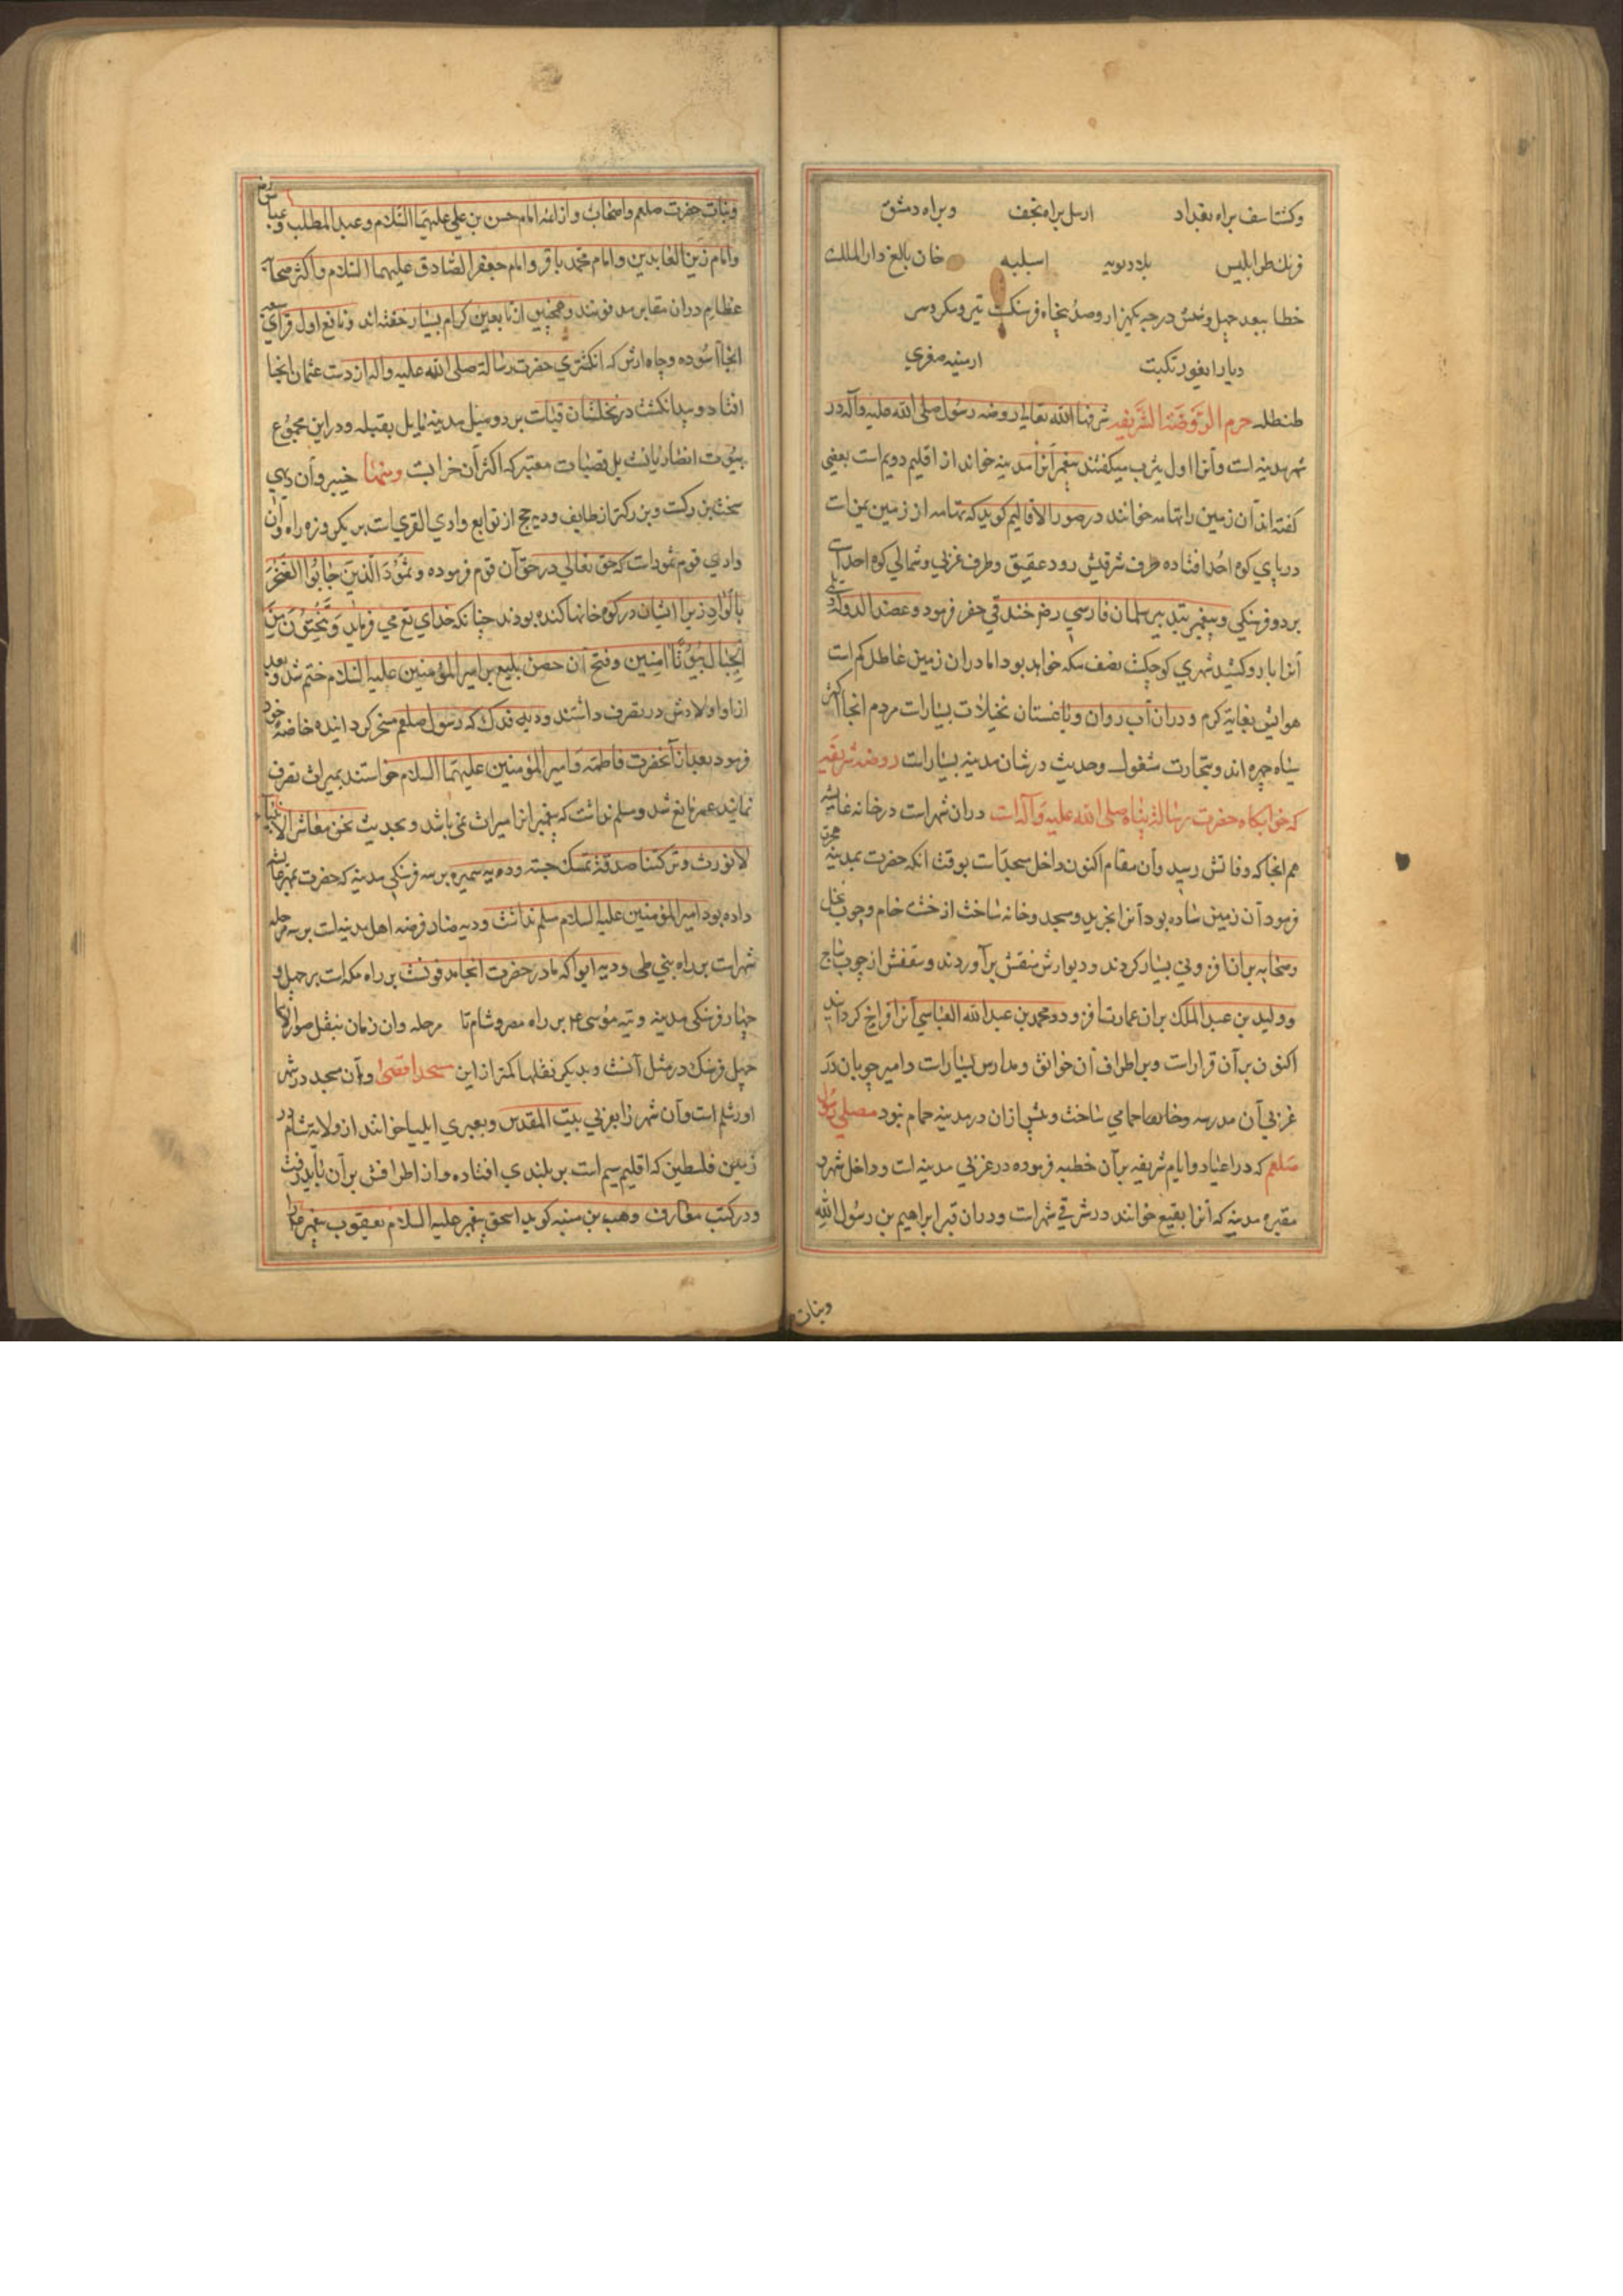 وکشتاسف براه بغداد ارسل براه نجف وبراه دمشق
فرنک طرابلیس بلاد نوبیه اسبلیه خان بالغ دار الملک
خطا ببعد چهل وشش درجه یکهزار وصد پنجاه فرسنک
دیار ایغور تکیت ارمنیه صغری
طنطله حرم الروضة الشریفه شرفها الله تعالی روضه رسول صلی الله علیه وآله در
شهر مدینه است وآنرا اول یثرب میکفتند پیغمبر آنرا مدینه خواند از اقلیم دویم است بعضی
کفته اند آن زمین را تهامه خوانند در صور الاقالیم کوید که تهامه از زمین یمن است
در پای کوه احد افتاده طرف شرقیش رود عقیق وطرف غربی وشمالی کوه احد است
بر دو فرسنکی وپیغمبر بتدبیر سلمان فارسی رض خندقی حفر فرموده وعضد الدوله
آنرا بارو کشید شهری کوچکست بضف مکه خواهد بود اما در ان زمین عاطل کم است
هوایش بغایة کرم ودران آب روان وباغستان نخیلات بسیار است مردم انجا اکثر
سیاه چهره اند وبتجارت مشغول وحدیث در شان مدینه بسیار است روضه شریفه
که خوابکاه حضرت رسالة پناه صلی الله علیه وآله است دران شهر است در خانه عایشه
هم انجا که وفاتش رسید وآن مقام اکنون داخل مسجد است بوقت آنکه حضرت بمدینه هجرت
فرمود آن زمین ساده بود آنرا بخرید ومسجد وخانه ساخت از خشت خام وچوب نخل
وصحابه بران افزونی بسیار کردند ودیوارش منقش برآوردند وسقفش از چوب ساج
وولید بن عبد الملک بران عمارت افزود ومحمد بن عبد الله العباسی آنرا فراخ کردانید
اکنون برآن قرار است وبر اطراف آن خوانق ومدارس بسیار است وامیر چوپان در
غربی آن مدرسه وخانقاه حمامی ساخت وپیش ازان در مدینه حمام نبود مصلی رسول
صلعم که در اعیاد وایام شریفه برآن خطبه فرموده در غربی مدینه است وداخل شهر و
مقبره مدینه که آنرا بقیع خوانند در شرقی شهر است ودران قبر ابراهیم بن رسول الله
وبنات
وبنات حضرت صلعم واصحاب واز ائمه امام حسن بن علی علیهما السلام وعبد المطلب وعباس رض
وامام زین العابدین وامام محمد باقر وامام جعفر الصادق علیهما السلام واکثر صحابه
عظام دران مقابر مدفونند وهمچنین از تابعین کرام بسیار خفته اند ونافع اول قرای سبعه
انجا آسوده وچاه ارش که انکشتری حضرت رسالة صلی الله علیه واله از دست عثمان انجا
افتاد وپیدا نکشت در نخلستان قبا است بر دو میل مدینه مایل بقبله ودر این مجموع
بیوت انصاریانست بل قصبات معتبر که اکثر آن خرابست ومنها خیبر وآن دهی
سخت بزرکست وبزرکتر از طایف ودیه حجر از توابع وادی القری است بر یکروزه راه وآن
وادی قوم ثمود است که حق تعالی در حق آن قوم فرموده وثمود الذین جابوا الصخر
بالواد زیرا ایشان در کوه خانها کنده بودند چنانکه خدای تع می فرماید وتنحتون من
الجبال بیوتا امنین وفتح آن حصن بلیغ بر امیر المؤمنین علیه السلام ختم شد وبعد
ازاو اولادش در تصرف داشتند ودیه فدک که رسول صلعم مسخر کردانیده خاصه خود
فرمود بعد از آنحضرت فاطمه وامیر المؤمنین علیهما السلام خواستند بمیراث تصرف
نمایند عمر مانع شد ومسلم نداشت که پیغمبر انرا میراث نمی باشد وبحدیث نحن معاشر الانبیاء
لا نورث وترکتنا صدقة تمسک جسته وده دیه سمیره بر سه فرسنکی مدینه که حضرت
داده بود امیر المؤمنین علیه السلام مسلم نداشت ودیه صاد فرضه اهل مدینه است بر سه مرحله
شهر است بر راه بنی طی ودیه ابوا که مادر حضرت انجا مدفونست بر راه مکه است بر چهل و
چهار فرسنکی مدینه وتیه موسی ع بر راه مصر وشام تا مرحله وان زمان بنقل صور الاقالیم
چهل فرسنک در مثل آنست وبدیکر نقلها کمتر از این مسجد اقصی وآن مسجد در شهر
اورشلم است وآن شهر را بعربی بیت المقدس وبعبری ایلیا خوانند از ولایة شام و
زمین فلسطین که اقلیم سیم است بر بلندی افتاده واز اطرافش برآن باید رفت
ودر کتب معارف وهب بن منبه کوید اسحق پیغمبر علیه السلام یعقوب پیغمبر